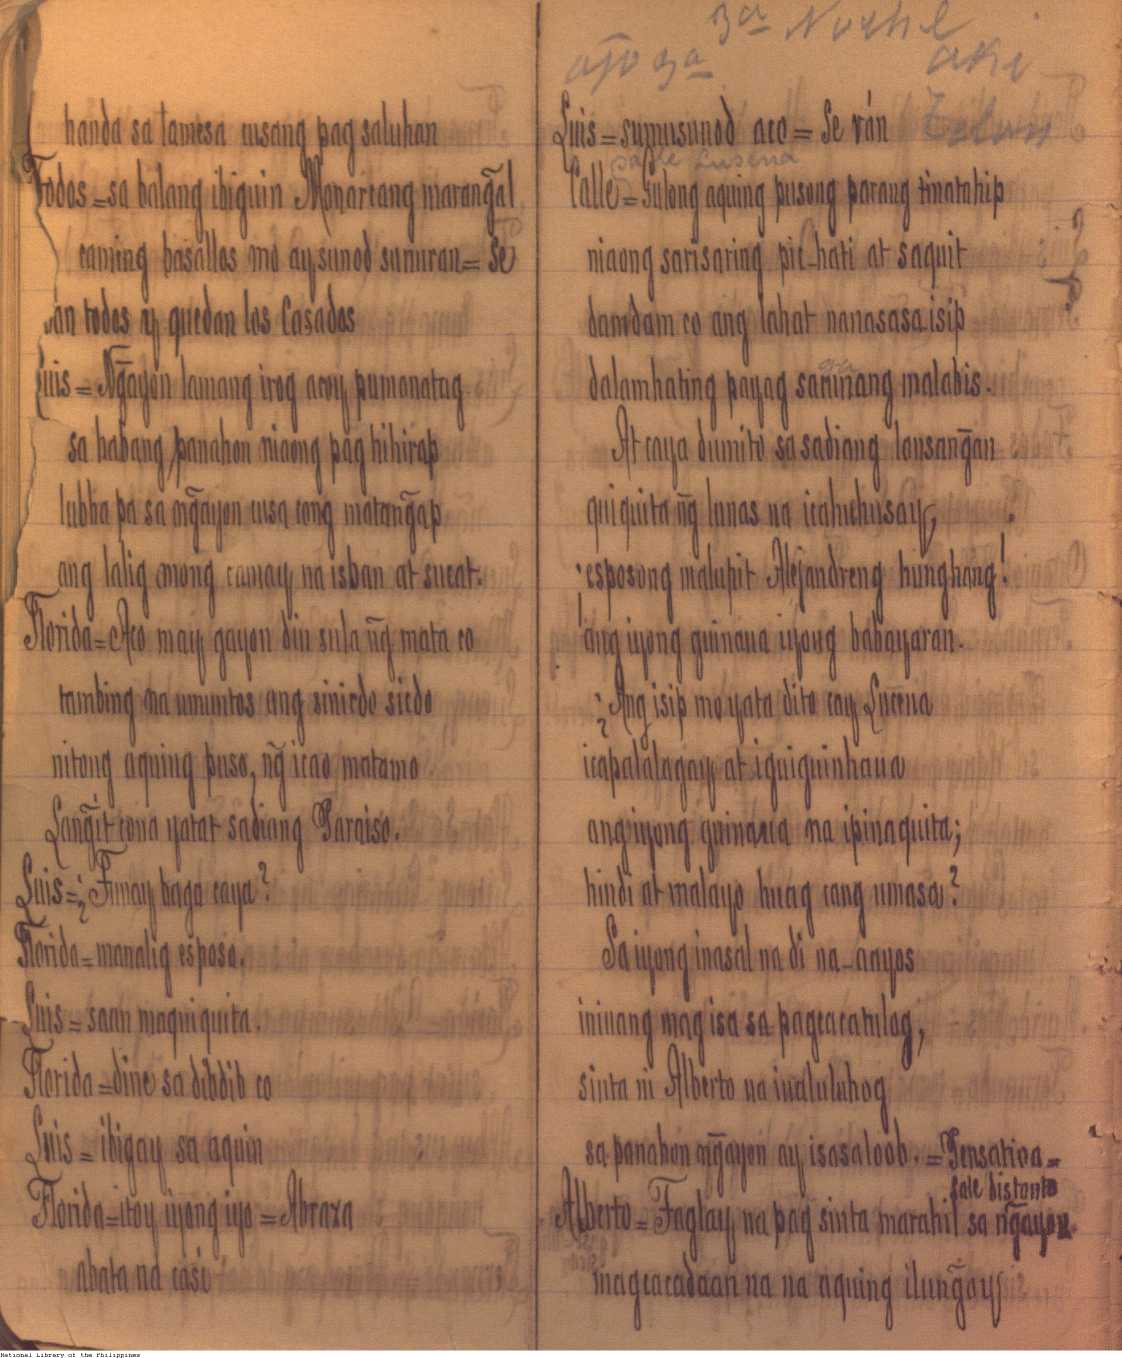 handa sa lamesa cusang pag saluhan
Todos = sa balang ibiguin Monarcang maran͠gal
caming basallos mo ay sunod sunuran = Se
van todos y quedan los Casados
Luis = N͠gayon lamang irog acoy pumanatag
sa habang panahon niaong pag hihirap
lubha pa sa n͠gayon cusa cong matan͠gap
ang lalig mong camay na isban at sucat.
Florida = Aco may gayon din sula n͠g mata co
tambing na umuntos ang sinicdo sicdo
nitong aquing puso, n͠g icao matamo
Lan͠git cona yatat sadiang Paraiso.
Luis = ¿Tunay baga caya?
Florida = manalig esposo.
Luis = saan maquiquita.
Florida = dine sa dibdib co
Luis = ibigay sa aquin
Florida = itoy iyong iyo = Abraza
abata na casi
3ª Noche
ajo 3ª
aki
Luis = sumusunod aco = Se ván
Telon
sale Lusena
Calle = Gulong aquing pusong parang tinatahip
niaong sarisaring pic-hati at saquit
damdam co ang lahat nanasasa isip
dalamhating payag sa malabis.
At caya dumito sa sadiang lansan͠gan
quiquita n͠g lunas na icahuhusay,
¡esposong malupit Alejandreng hunghang!
¡ang iyong guinaua iyong babayaran.
¿Ang isip mo yata dito cay Lucena
icapalalagay at iguiguinhaua
ang iyong guinaua na ipinaquita;
hindi at malayo huag cang umasa?
Sa iyong inasal na di na-aayos
iniuang mag isa sa pagcacatulog,
sinta ni Alberto na inaluluhog
sa panahon n͠gayon ay isasaloob. = Pensativa =
sale distanto
Alberto = Taglay na pag sinta marahil sa n͠gayon
magcacadaan na na aquing ilun͠gay
National Library of the Philippines